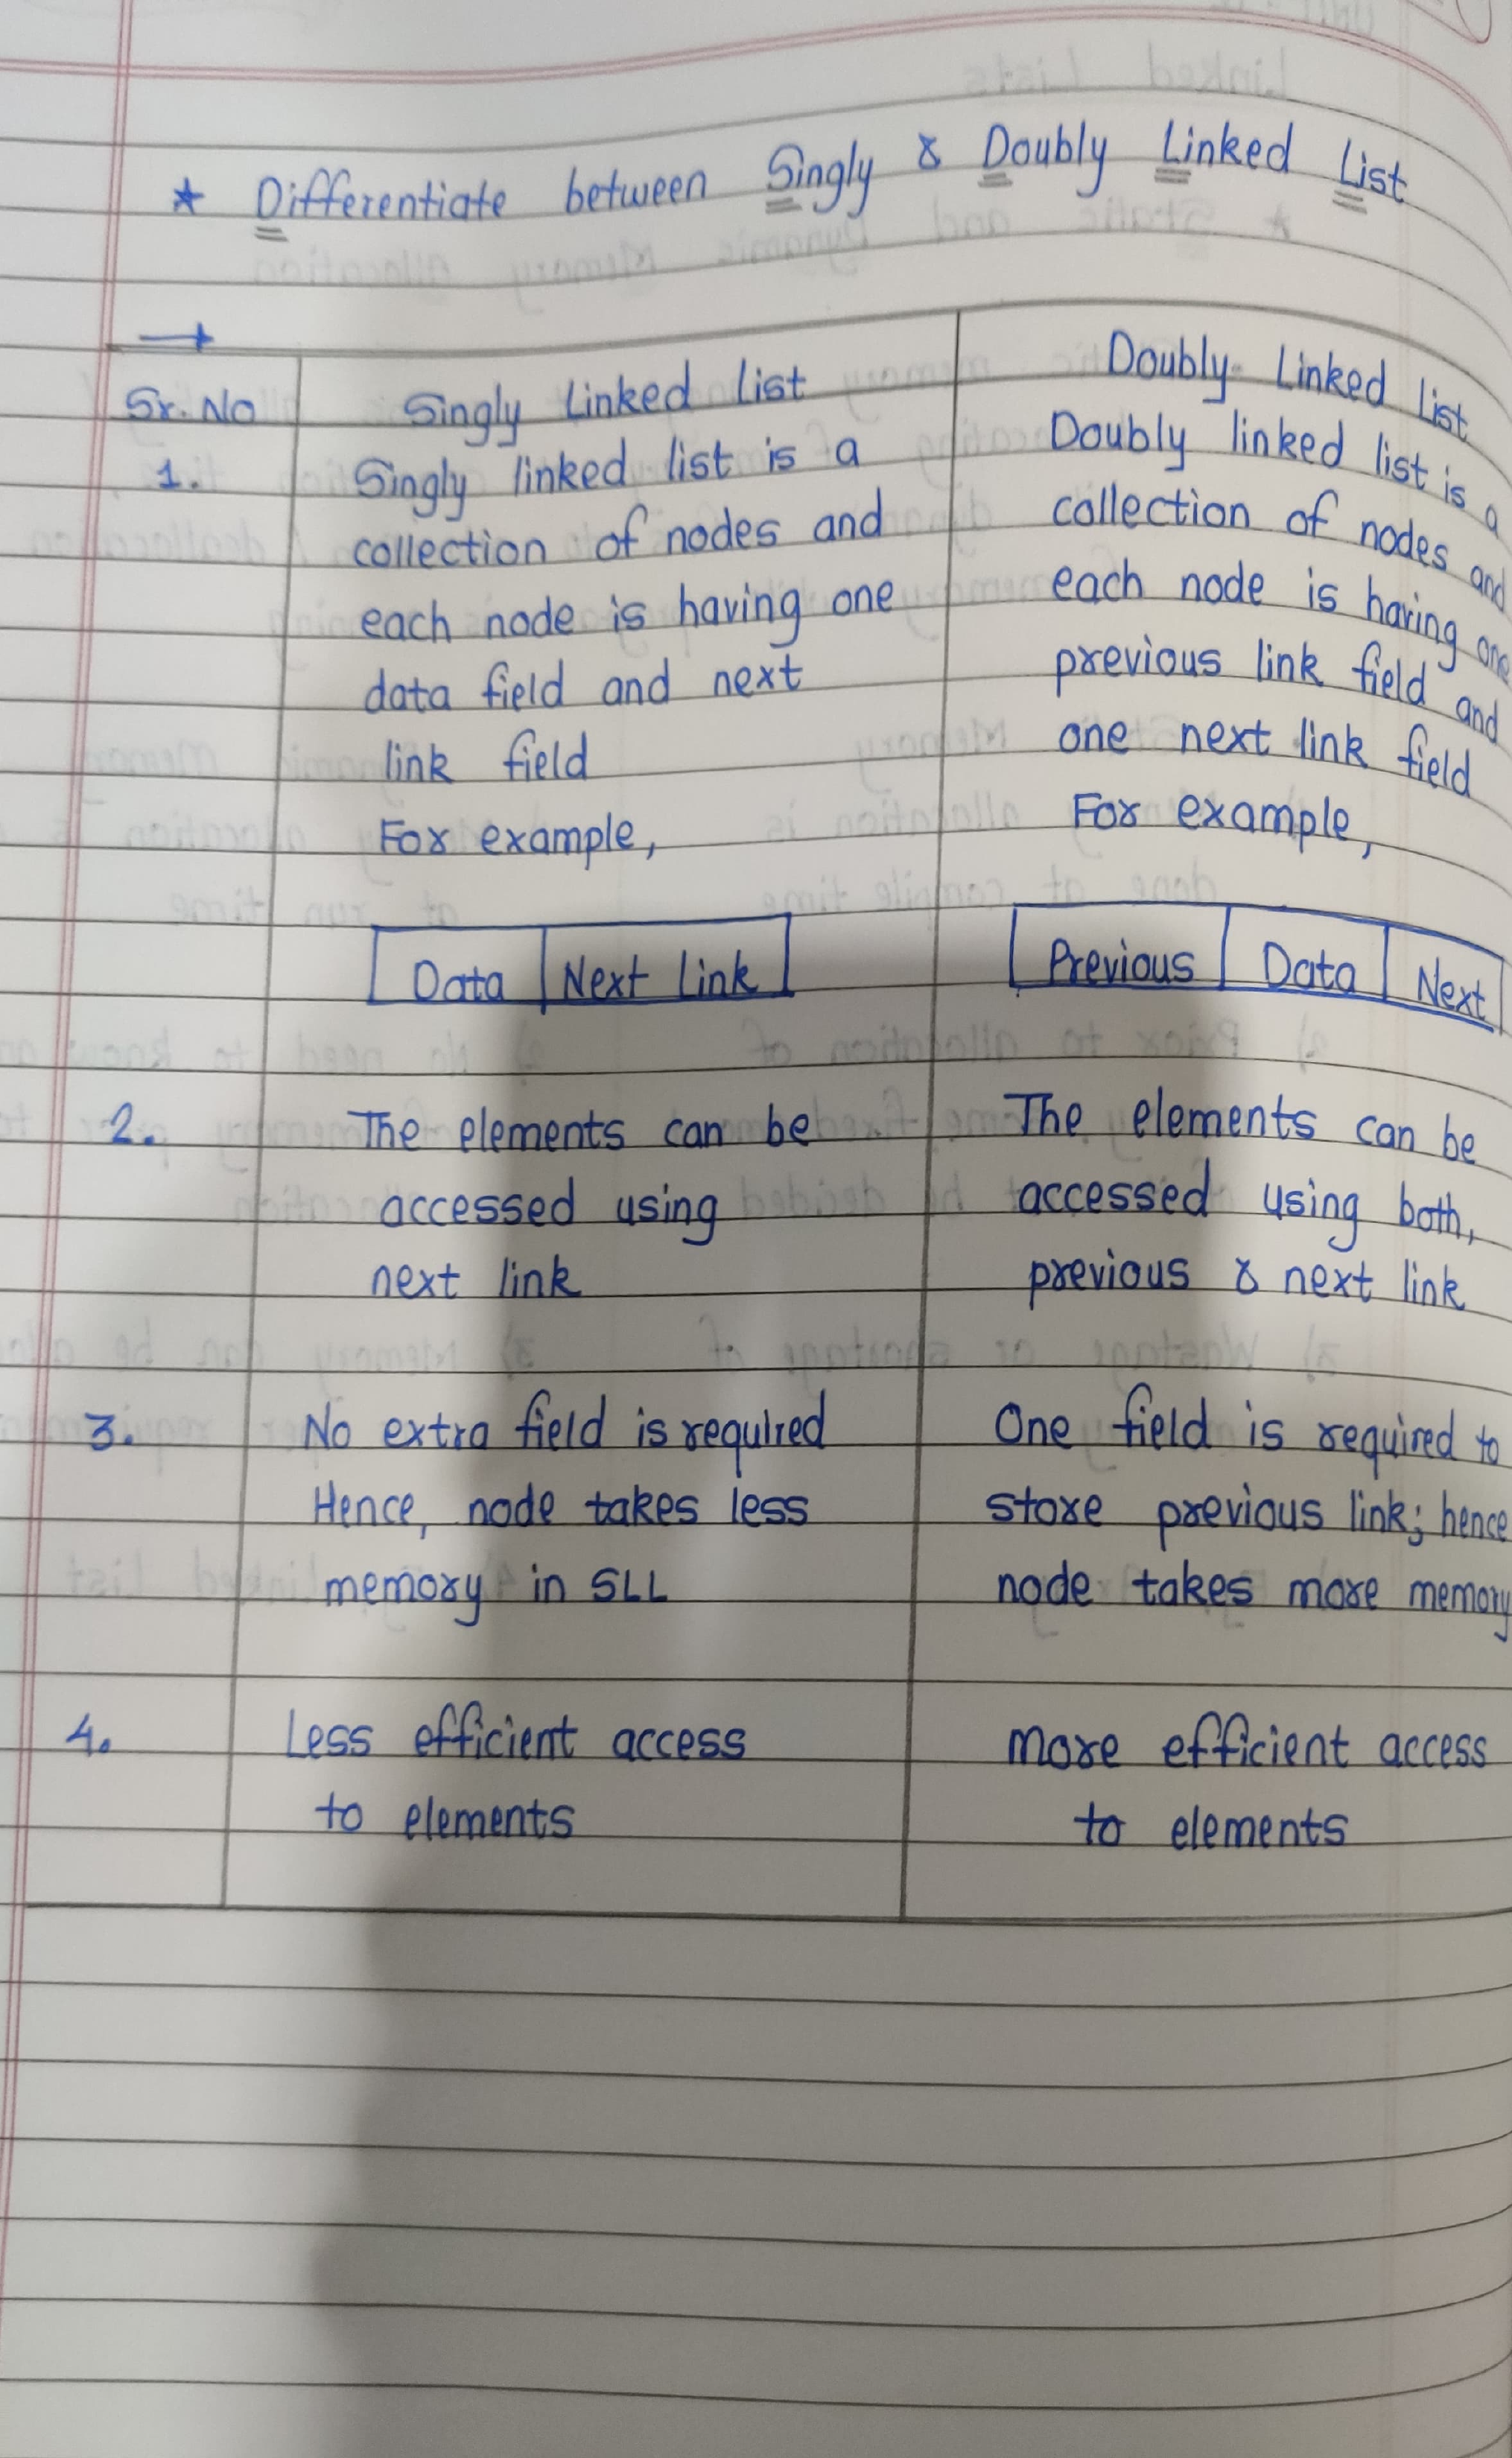 * Differentiate between Singly & Doubly Linked List
→
Sr. No
Singly Linked List
Doubly Linked List
1.
Singly linked list is a
collection of nodes and
each node is having one
data field and next
link field
For example,
Data | Next Link
Doubly linked list is a
collection of nodes and
each node is having one
previous link field and
one next link field
For example,
Previous | Data | Next
2.
The elements can be
accessed using
next link
The elements can be
accessed using both,
previous & next link
3.
No extra field is required
Hence, node takes less
memory in SLL
One field is required to
store previous link; hence
node takes more memory
4.
Less efficient access
to elements
More efficient access
to elements